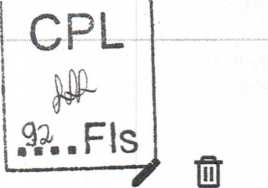 CPL
92....Fls